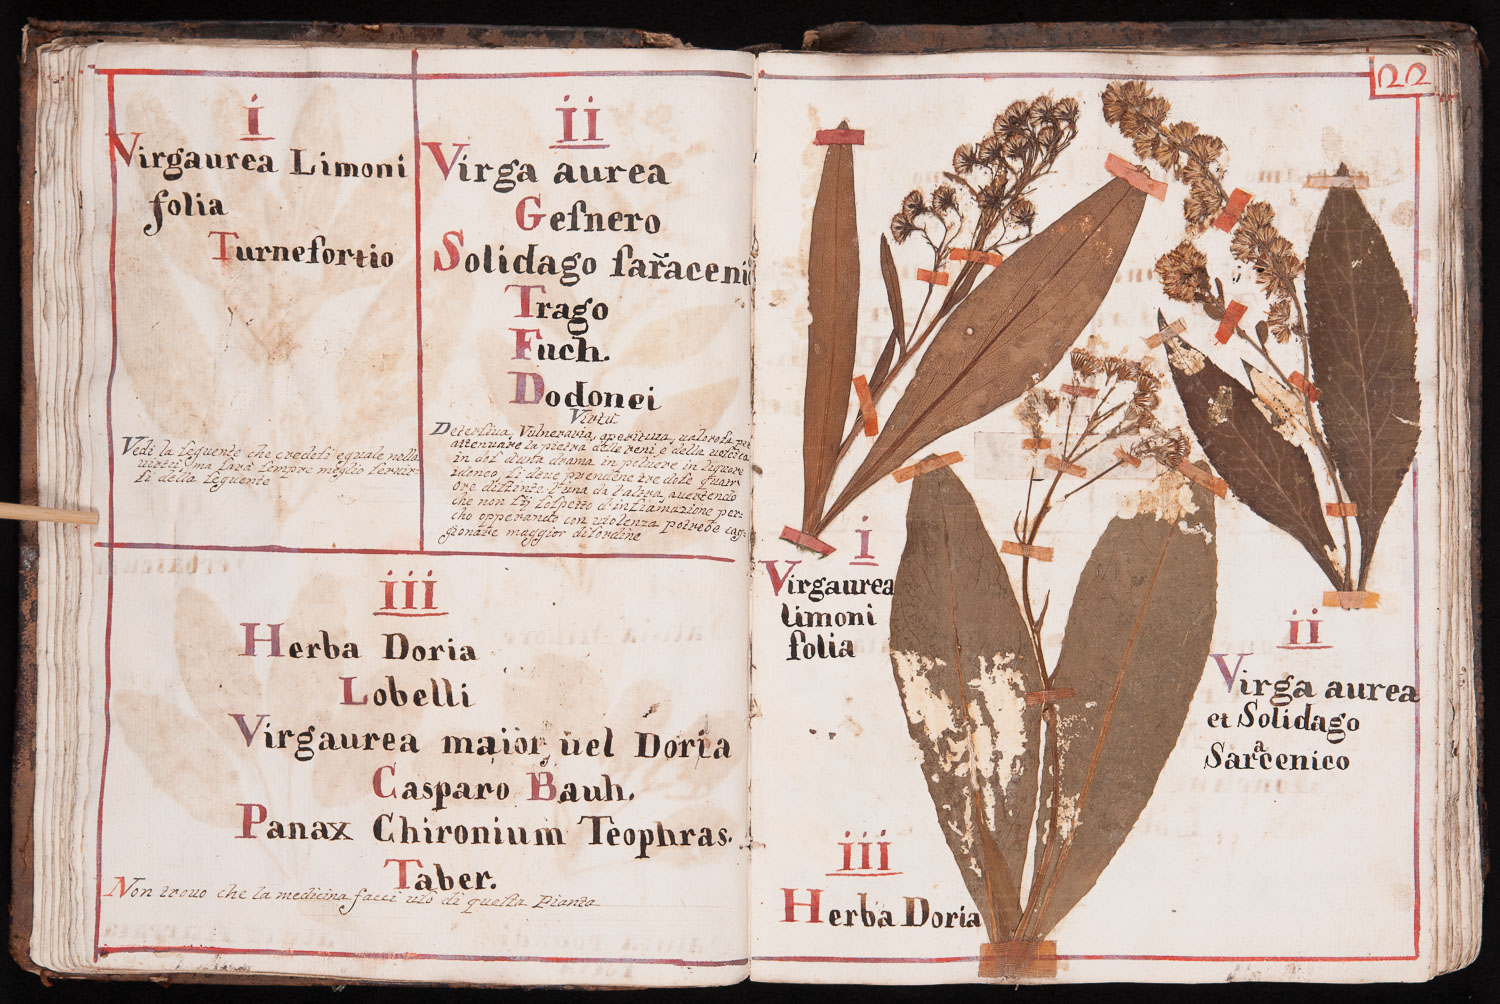 i
Virgaurea Limoni
folia
Turnefortio
Vedi la seguente che credesi equale nelle
virtù, ma sarà sempre meglio servir-
si della seguente
ii
Virga aurea
Gesnero
Solidago saraceni
Trago
Fuch.
Dodonei
Virtù
Detersiva, Vulneraria, aperitiva, valorosa per
attenuare la pietra delle reni, e della vesica
in dose d'una drama in polvere in liquore
idoneo, si deve prendene tre dose quatr'
ore distante l'una da l'altra, avertendo
che non sij sospetto d'inflamazione per-
che opperando con violenza potrebe cag-
gionare maggior disordine
iii
Herba Doria
Lobelli
Virgaurea maior, uel Doria
Casparo Bauh.
Panax Chironium Teophras.
Taber.
Non trovo che la medicina facci uso di questa Pianta
22
i
Virgaurea
limoni
folia
ii
Virga aurea
et Solidago
Saracenico
iii
Herba Doria